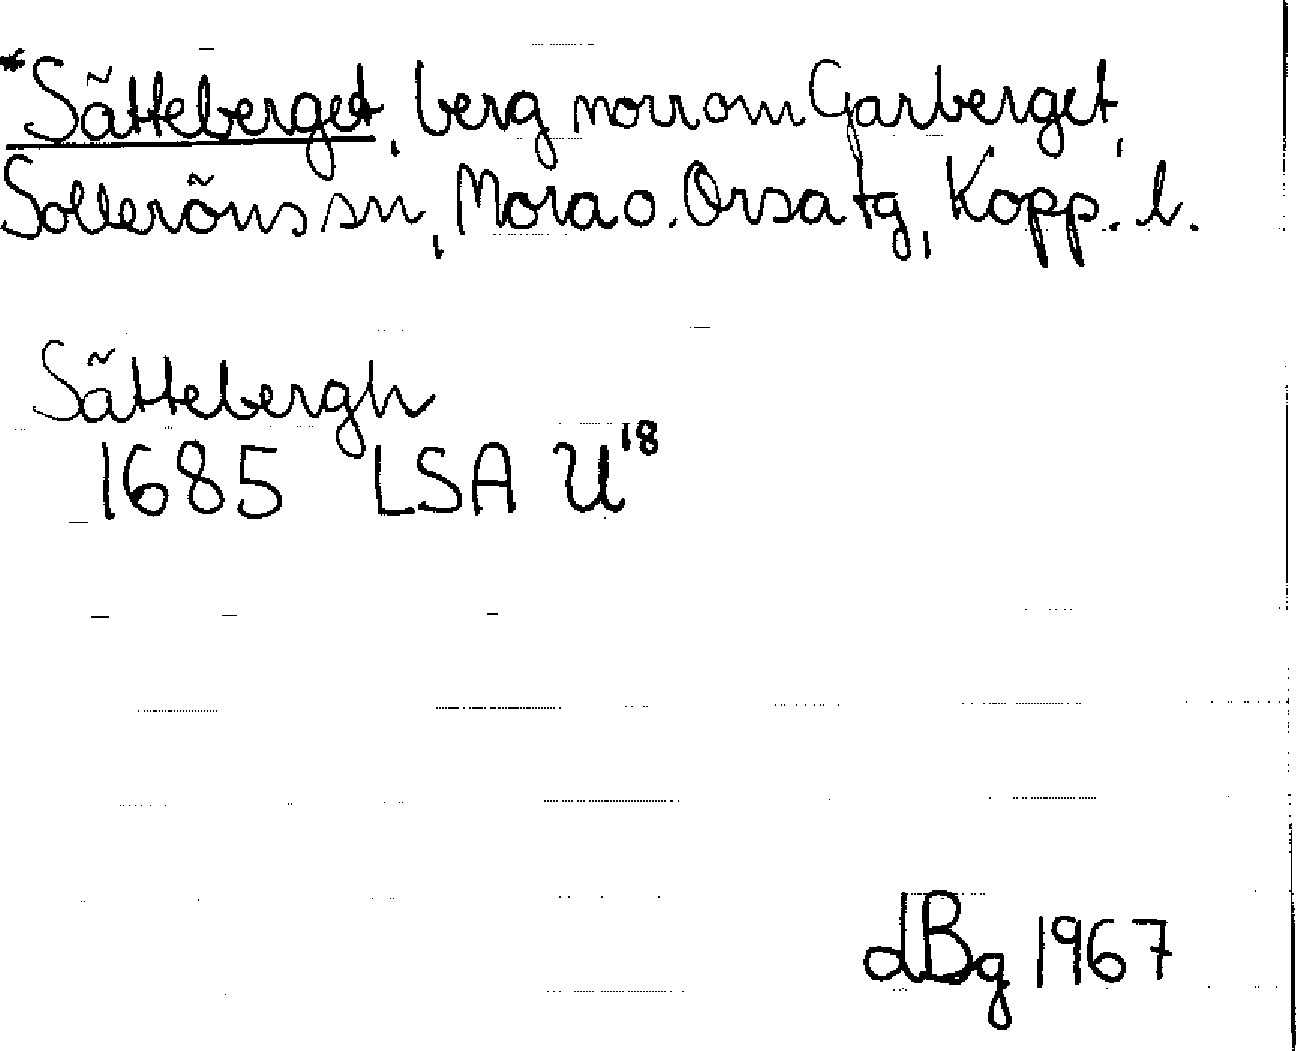 *Sätteberget, berg norr om Garberget,
Solleröns sn, Mora o. Orsa tg, Kopp. l.
Sättebergh
1685 LSA U18
dBg 1967